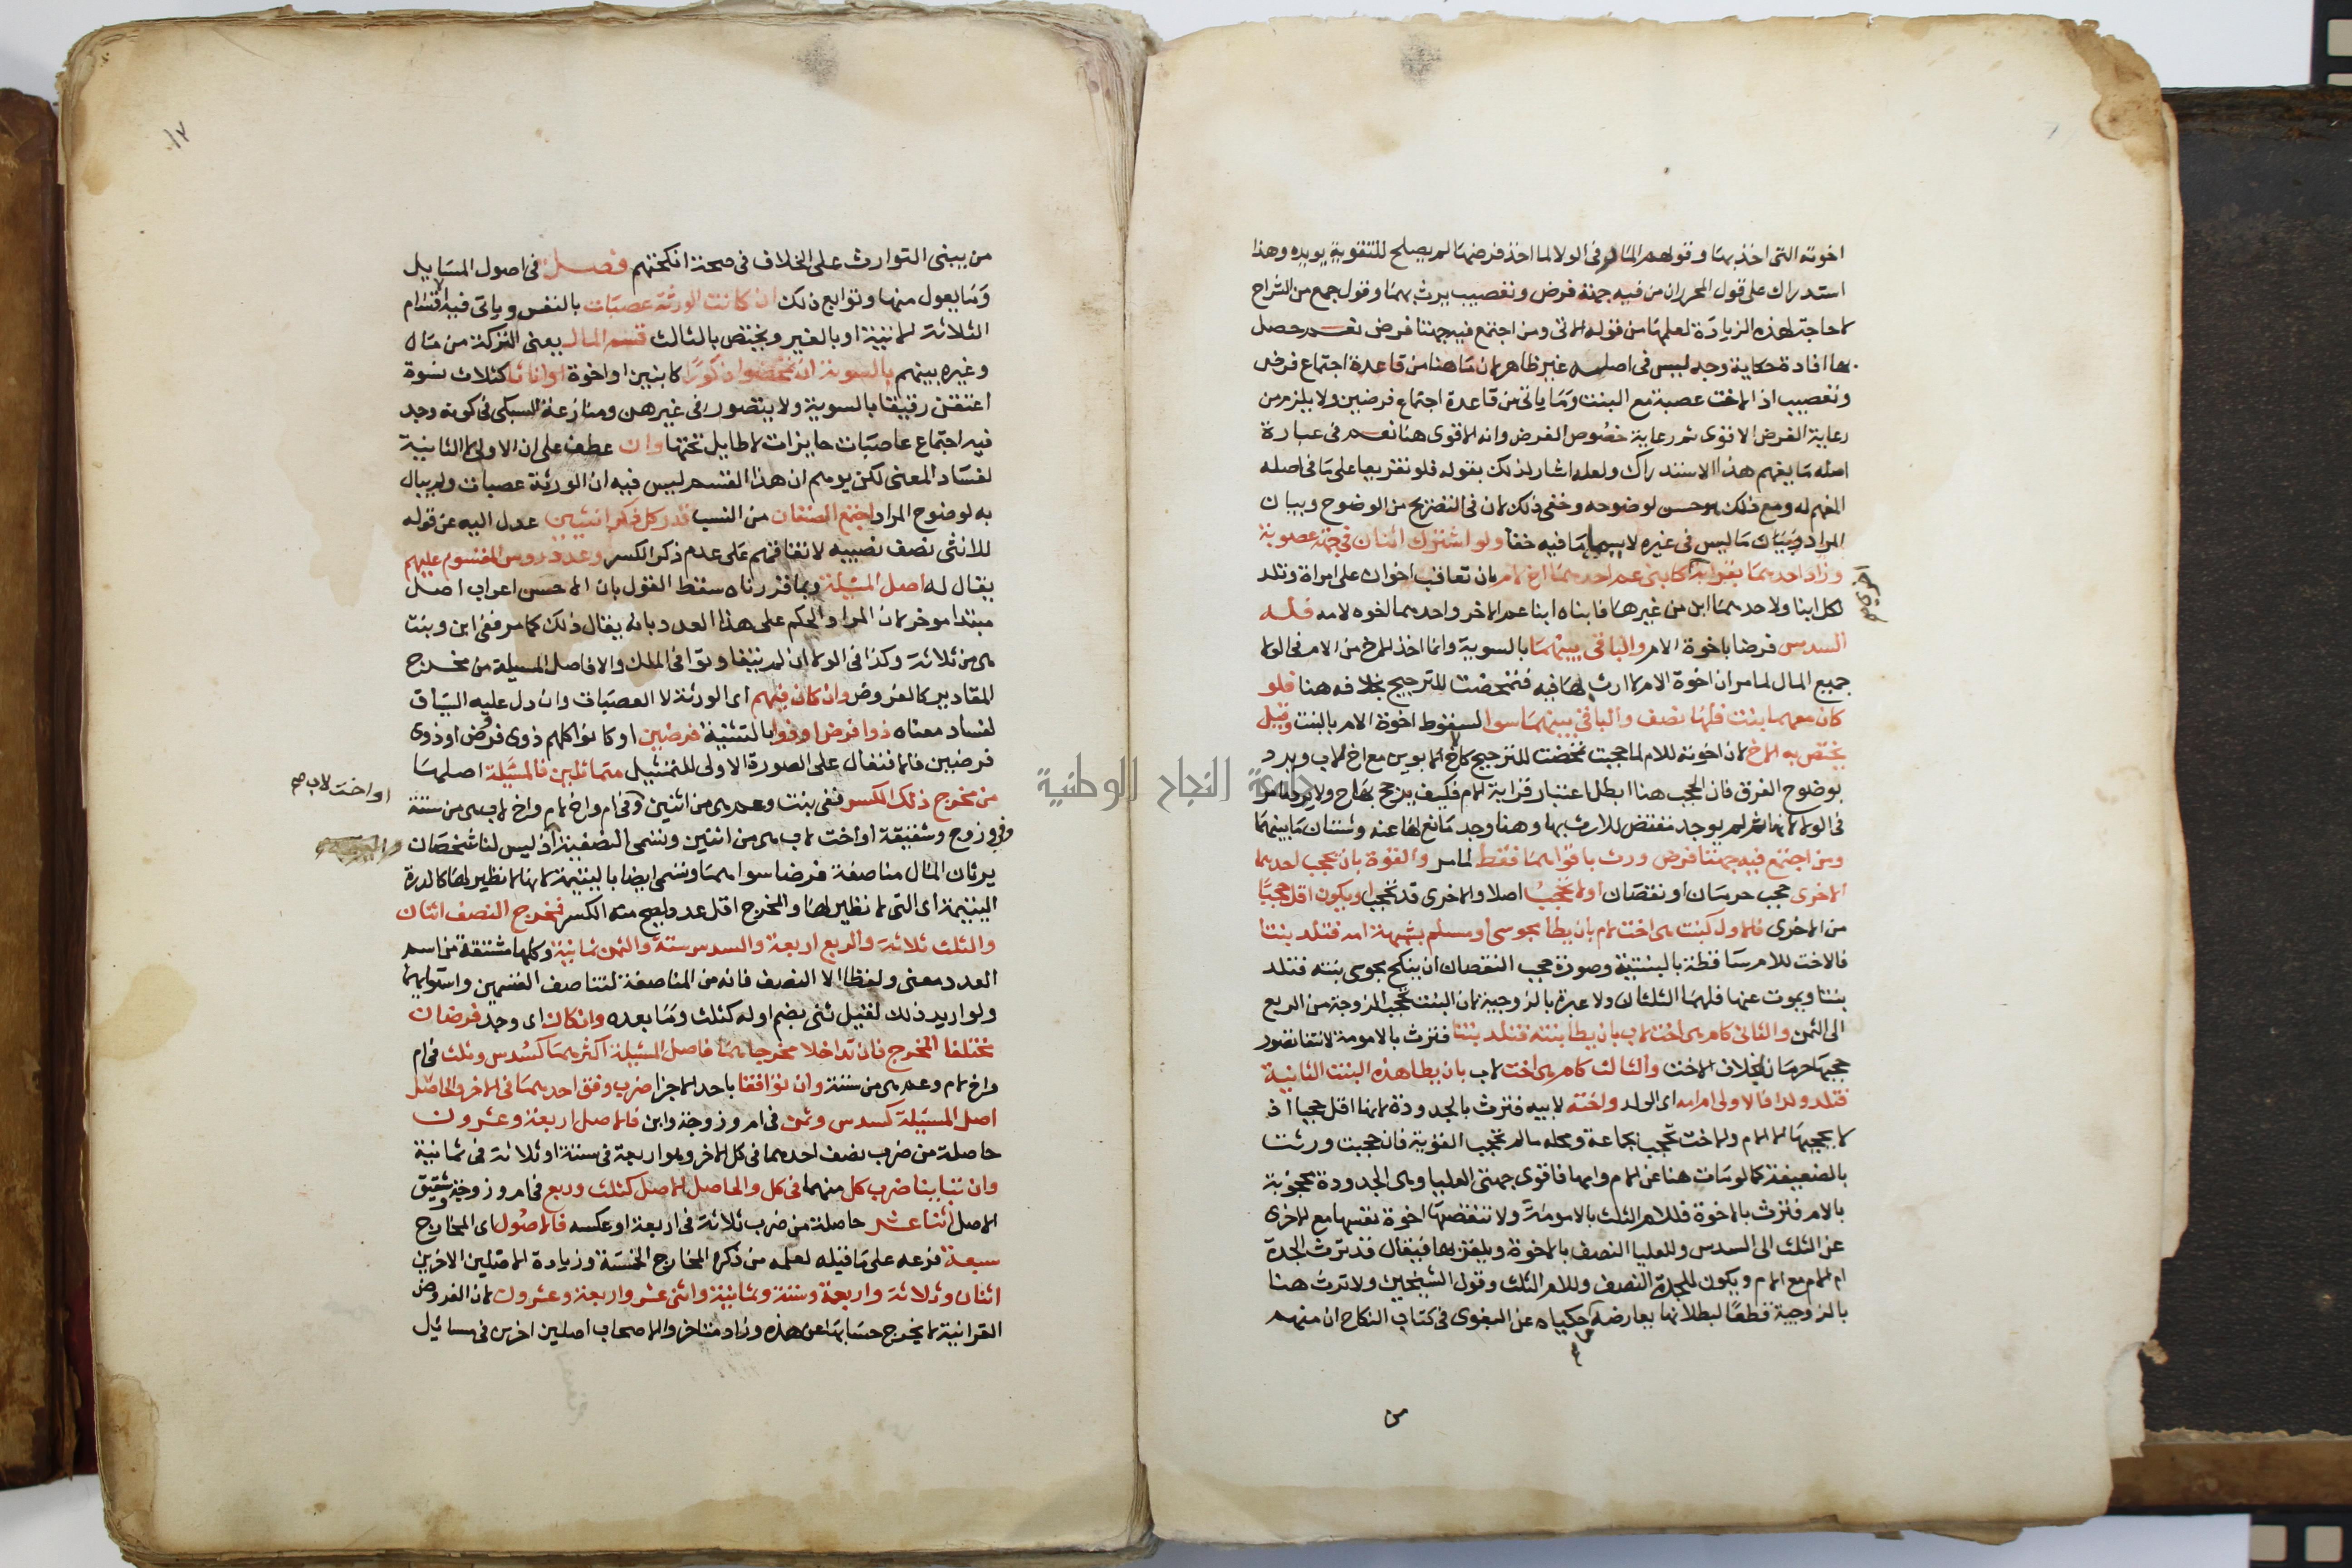 اخوته التى اخذ بها وقولهم المار فى الولا لما اخذ فرضها لم يصلح للتقوية يويده وهذا
استدراك على قول المحرر ان من فيه جهة فرض وتعصيب يرث بهما وقول جمع من الشراح
لا حاجة لهذه الزيادة لعلمها من قوله الاتى ومن اجتمع فيه جهتا فرض نعم حصل
بها افادة حكاية وجه ليس فى اصله غير ظاهر لان ما هنا من قاعدة اجتماع فرض
وتعصيب اذ الاخت عصبة مع البنت وما ياتى من قاعدة اجتماع فرضين ولا يلزم من
رعاية الفرض الاقوى ثم رعاية خصوص الفرض وانه الاقوى هنا نعم فى عبارة
اصله ما يفهم هذا الاستدراك ولعله اشار لذلك بقوله فلو تفريعا على ما فى اصله
المفهم له ومع ذلك هو حسن لوضوحه وخفى ذلك لان فى التصريح من الوضوح وبيان
المراد وبيان ما ليس فى غيره لا سيما ما فيه خفا ولو اشترك اثنان فى جهة عصوبة
وزاد احدهما بقرابة كابنى عم احدهما اخ لام بان تعاقب اخوان على امراة وتلد
لكل ابنا ولاحدهما ابن من غيرها فابناه ابنا عم الاخر واحدهما اخوه لامه فله
السدس فرضا باخوة الام والباقى بينهما بالسوية وانما اخذ الاخ من الام فى الولا
جميع المال لما مر ان اخوة الام لا ارث لها فيه فتمحضت للترجيح بخلافه هنا فلو
كان معهما بنت فلها نصف والباقى بينهما سوا لسقوط اخوة الام بالبنت وقيل
يختص به الاخ لان اخوته للام لما حجبت تمحضت للترجيح كاخ لابوين مع اخ لاب ويرد
بوضوح الفرق فان الحجب هنا ابطل اعتبار قرابة الام فكيف يرجح بها ح ولا يرد ما مر
فى الولا لانها ثم لم يوجد مقتض للارث بها وهنا وجد مانع لها عنه وشتان ما بينهما
ومن اجتمع فيه جهتا فرض ورث باقواهما فقط لما مر والقوة بان تحجب احدهما
الاخرى حجب حرمان او نقصان او لا تحجب اصلا والاخرى قد تحجب او يكون اقل حجبا
من الاخرى فالاول كبنت هى اخت لام بان يطا مجوسى او مسلم بشبهة امه فتلد بنتا
فالاخت للام ساقطة بالبنتية وصورة حجب النقصان ان ينكح مجوسى بنته فتلد
بنتا ويموت عنها فلهما الثلثان ولا عبرة بالزوجية لان البنت تحجب الزوجة من الربع
الى الثمن والثانى كام هى اخت لاب بان يطا بنته فتلد بنتا فترث بالامومة لانتفا تصور
حجبها حرمانا بخلاف الاخت والثالث كام ام هى اخت لاب بان يطا هذه البنت الثانية
فتلد ولدا فالاولى ام امه اى الولد واخته لابيه فترث بالجدودة لانها اقل حجبا اذ
لا يحجبها الا الام والاخت تحجب بجماعة ومحله ما لم تحجب القوية فان حجبت ورثت
بالضعيفة كما لو مات هنا عن الام وامها فاقوى جهتى العليا وهى الجدودة محجوبة
بالام فترث بالاخوة فللام الثلث بالامومة ولا تنقصها اخوة نفسها مع الاخرى
عن الثلث الى السدس وللعليا النصف بالاخوة ويلغز بها فيقال قد ترث الجدة
ام الام مع الام ويكون للجدة النصف وللام الثلث وقول الشيخين ولا ترث هنا
بالزوجية قطعا لبطلانها يعارضه حكياه عن البغوى فى كتاب النكاح ان منهم
من
من يبنى التوارث على الخلاف فى صحة انكحتهم فصل فى اصول المسايل
وما يعول منها وتوابع ذلك ان كانت الورثة عصبات بالنفس وياتى فيه اقسام
الثلاثة الاتية او بالغير ويختص بالثالث قسم المال يعنى التركة من مال
وغيره بينهم بالسوية ان تمحضوا ذكورا كابنين او اخوة او اناثا كثلاث نسوة
اعتقن رقيقا بالسوية ولا يتصور فى غيرهن ومنازعة السبكى فى كونه وجد
فيه اجتماع عاصبات حايزات لا طايل تحتها وان عطف على ان الاولى لا الثانية
لفساد المعنى لكن يوهم ان هذا القسم ليس فيه ان الورثة عصبات ولم يبال
به لوضوح المراد اجتمع الصنفان من النسب قدر كل ذكر انثيين عدل اليه عن قوله
للانثى نصف نصيبه لاتفاقهم على عدم ذكر الكسر وعدد روس المقسوم عليهم
يقال له اصل المسيلة وبما قررناه سقط القول بان الاحسن اعراب اصل
مبتدا موخر لان المراد الحكم على هذا العدد بانه يقال ذلك كما مر ففى ابن وبنت
هى من ثلاثة وكذا فى الولا ان لم يتفاوتوا فى الملك والا فاصل المسيلة من مخرج
المقادير كالفروض وان كان فيهم اى الورثة لا العصبات وان دل عليه السياق
لفساد معناه ذو فرض او ذوا بالتثنية فرضين او كانوا كلهم ذوى فرض او ذوى
فرضين فالاقتفال على الصورة الاولى للتمثيل متماثلين فالمسئلة اصلها
من مخرج ذلك الكسر ففى بنت وعم هى من اثنين وفى ام واخ لام واخ لاب هى من ستة
وفى زوج وشقيقة او اخت لاب هى من اثنين وتسمى النصفية اذ ليس لنا شخصان
او اخت لاب صح
يرثان المال مناصفة فرضا سواهما وتسمى ايضا باليتيمة لانها لا نظير لها كالدرة
اليتيمة اى التى لا نظير لها والمخرج اقل عدد يصح منه الكسر فمخرج النصف اثنان
والثلث ثلاثة والربع اربعة والسدس ستة والثمن ثمانية وكلها مشتقة من اسم
العدد معنى ولفظا الا النصف فانه من المناصفة لتناصف القسمين واستوايهما
ولو اريد ذلك لقيل ثنى بضم اوله كثلث وما بعده وان كان اى وجد فرضان
مختلفا المخرج فان تداخلا مخرجاهما فاصل المسيلة اكثرهما كسدس وثلث فى ام
واخ لام وعم هى من ستة وان توافقا باحد الاجزا ضرب وفق احدهما فى الاخر والحاصل
اصل المسيلة كسدس وثمن فى ام وزوجة وابن فالاصل اربعة وعشرون
حاصلة من ضرب نصف احدهما فى كل الاخر وهو اربعة فى ستة او ثلاثة فى ثمانية
وان تباينا ضرب كل منهما فى كل والحاصل الاصل كثلث وربع فى ام وزوجة وشقيق
الاصل اثنا عشر حاصلة من ضرب ثلاثة فى اربعة او عكسه فالاصول اى المخارج
سبعة فرعه على ما قبله لعلمه من ذكره المخارج الخمسة وزيادة الاصلين الاخرين
اثنان وثلاثة واربعة وستة وثمانية واثنى عشر واربعة وعشرون لان الفروض
القرانية لا يخرج حسابها عن هذه وزاد متاخروا الاصحاب اصلين اخرين فى مسائل
جامعة النجاح الوطنية